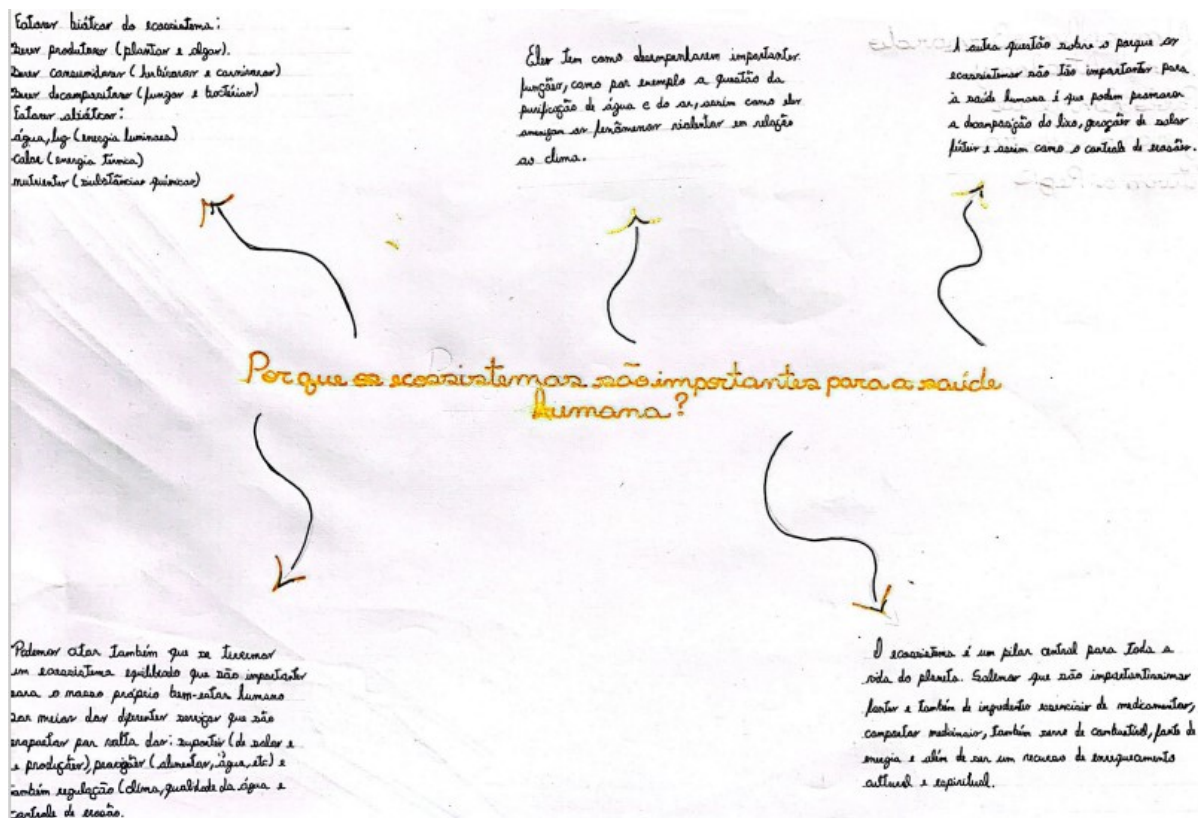 Fatores bióticos do ecossistema:
Seres produtores (plantas e algas).
Seres consumidores (herbívoros e carnívoros)
Seres decompositores (fungos e bactérias)
Fatores abióticos:
água, luz (energia luminosa)
calor (energia térmica)
nutrientes (substâncias químicas)
Eles tem como desempenharem importantes
funções, como por exemplo a questão da
purificação de água e do ar, assim como eles
amenizam os fenômenos violentos em relação
ao clima.
A outra questão sobre o porque os
ecossistemas são tão importantes para
à saúde humana é que podem promover
a decomposição do lixo, geração de solos
férteis e assim como o controle de erosão.
Por que os ecossistemas são importantes para a saúde
humana?
Podemos citar também que se tivermos
um ecossistema equilibrado que são importantes
para o nosso próprio bem-estar humano
por meios dos diferentes serviços que são
por volta dos: suportes (de solos e
e produções), provisões (alimentos, água, etc) e
também regulação (clima, qualidade da água e
controle de erosão.
O ecossistema é um pilar central para toda a
vida do planeta. Sabemos que são importantíssimas
fontes e também de ingredientes essenciais de medicamentos,
compostos medicinais, também serve de combustível, fonte de
energia e além de ser um recurso de enriquecimento
cultural e espiritual.